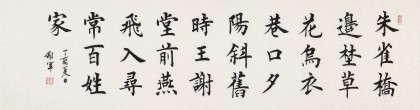 朱雀橋
邊埜草
花烏衣
巷口夕
陽斜舊
時王謝
堂前燕
飛入尋
常百姓
家
丁酉夏日